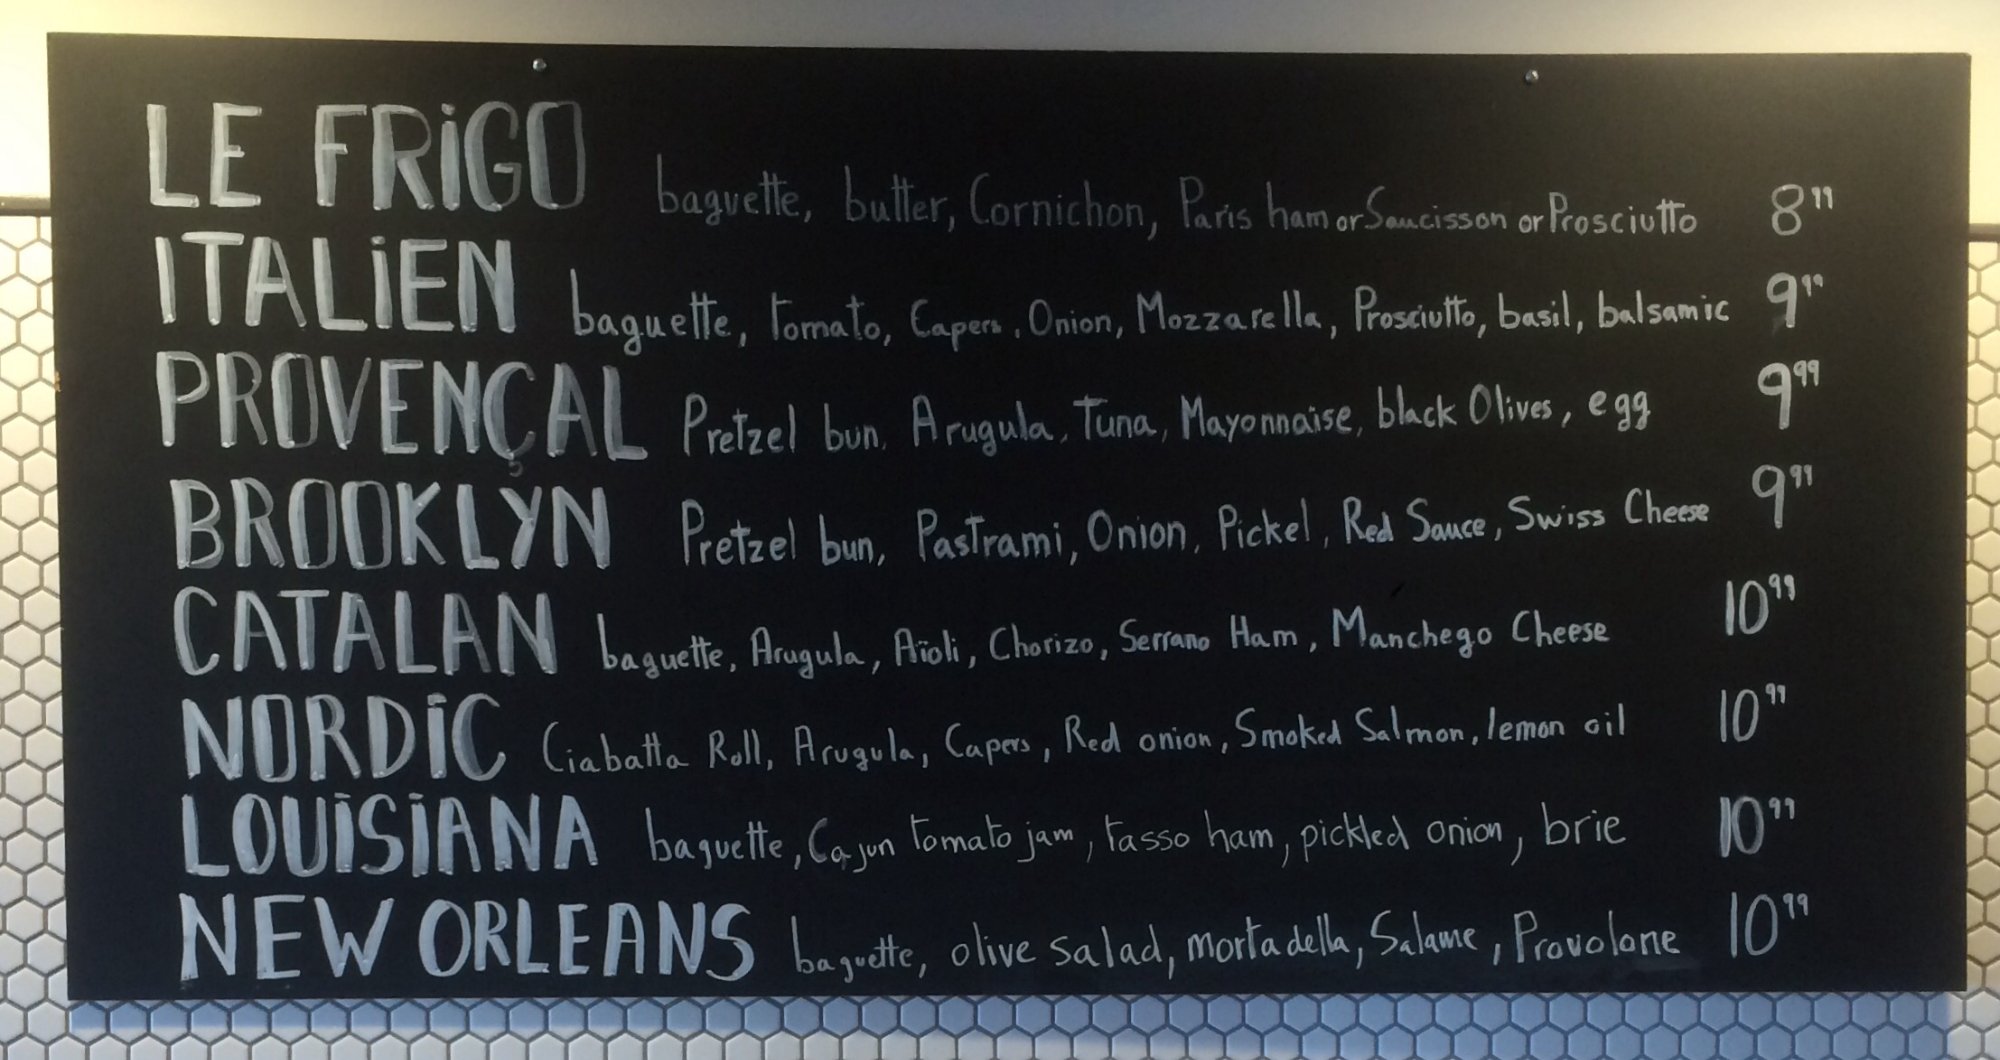 LE FRIGO baguette, butter, Cornichon, Paris ham or Saucisson or Prosciutto 8 99
ITALIEN baguette, Tomato, Capers, Onion, Mozzarella, Prosciutto, basil, balsamic 9 99
PROVENÇAL Pretzel bun, Arugula, Tuna, Mayonnaise, black Olives, egg 9 99
BROOKLYN Pretzel bun, Pastrami, Onion, Pickel, Red Sauce, Swiss Cheese 9 99
CATALAN baguette, Arugula, Aïoli, Chorizo, Serrano Ham, Manchego Cheese 10 99
NORDIC Ciabatta Roll, Arugula, Capers, Red onion, Smoked Salmon, lemon oil 10 99
LOUISIANA baguette, Cajun tomato jam, tasso ham, pickled onion, brie 10 99
NEW ORLEANS baguette, olive salad, mortadella, Salame, Provolone 10 99